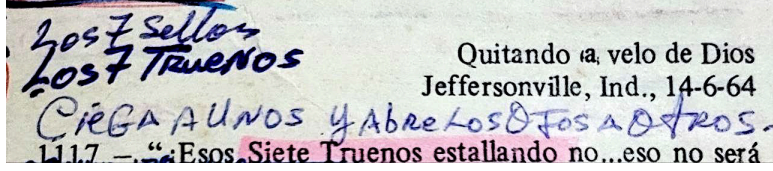 Los 7 Sellos
Los 7 TRUENOS
Quitando a, velo de Dios
Jeffersonville, Ind., 14-6-64
CIEGA A UNOS Y AbRe LOS OJOS A OTROS.
1117 – “¡Esos Siete Truenos estallando no...eso no será